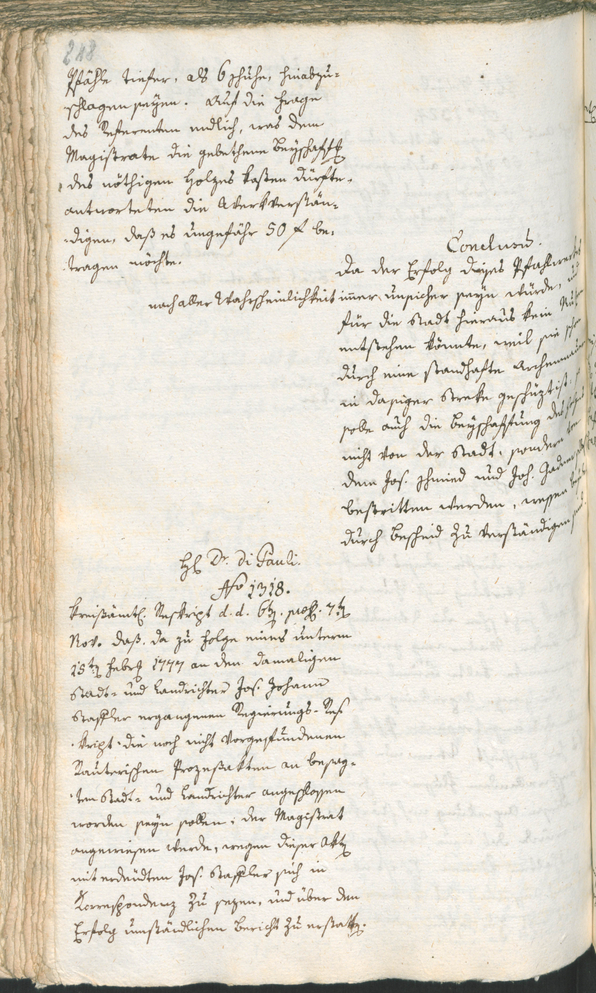 218
Pfähle tiefer, als 6 Schuhe, hinabzu-
schlagen seyen. Auf die Frage
des Referenten endlich, was dem
Magistrate die gebethene Beyschaffg
des nöthigen Holzes kosten dürfte,
antworteten die Werkverstän-
digen, daß es ungefähr 50 f be-
tragen möchte.
Conclusum.
Da der Erfolg dieses Pfahlwerkes
nach aller Wahrscheinlichkeit immer unsicher seyn würde,
für die Stadt hieraus kein
entstehen könnte, weil sie schon
durch eine standhafte Archenmauer
in dasiger Streke geschüzt ist,
solle auch die Beyschaffung des
nicht von der Stadt, sondern von
dem Jos. Schmied und Joh.
bestritten werden, wessen
durch Bescheid zu verständigen sind.
H. Dr. di Pauli.
No 1318.
Kreisämtl. Reskript d.d. 6t. praes. 7t
Nov. daß, da zu Folge eines unterm
15t Febr 1777 an den damaligen
Stadt- und Landrichter Jos. Johann
Staffler ergangenen Regierungs-Res
kript die noch nicht vorgefundenen
Rauterischen Prozeßakten an besag-
ten Stadt- und Landrichter angeschlossen
worden seyn sollen, der Magistrat
angewiesen werde, wegen dieser Akt
mit erdeudten Jos. Staffler sich in
Korrespondenz zu sezen, und über den
Erfolg umständlichen Bericht zu erstatt.